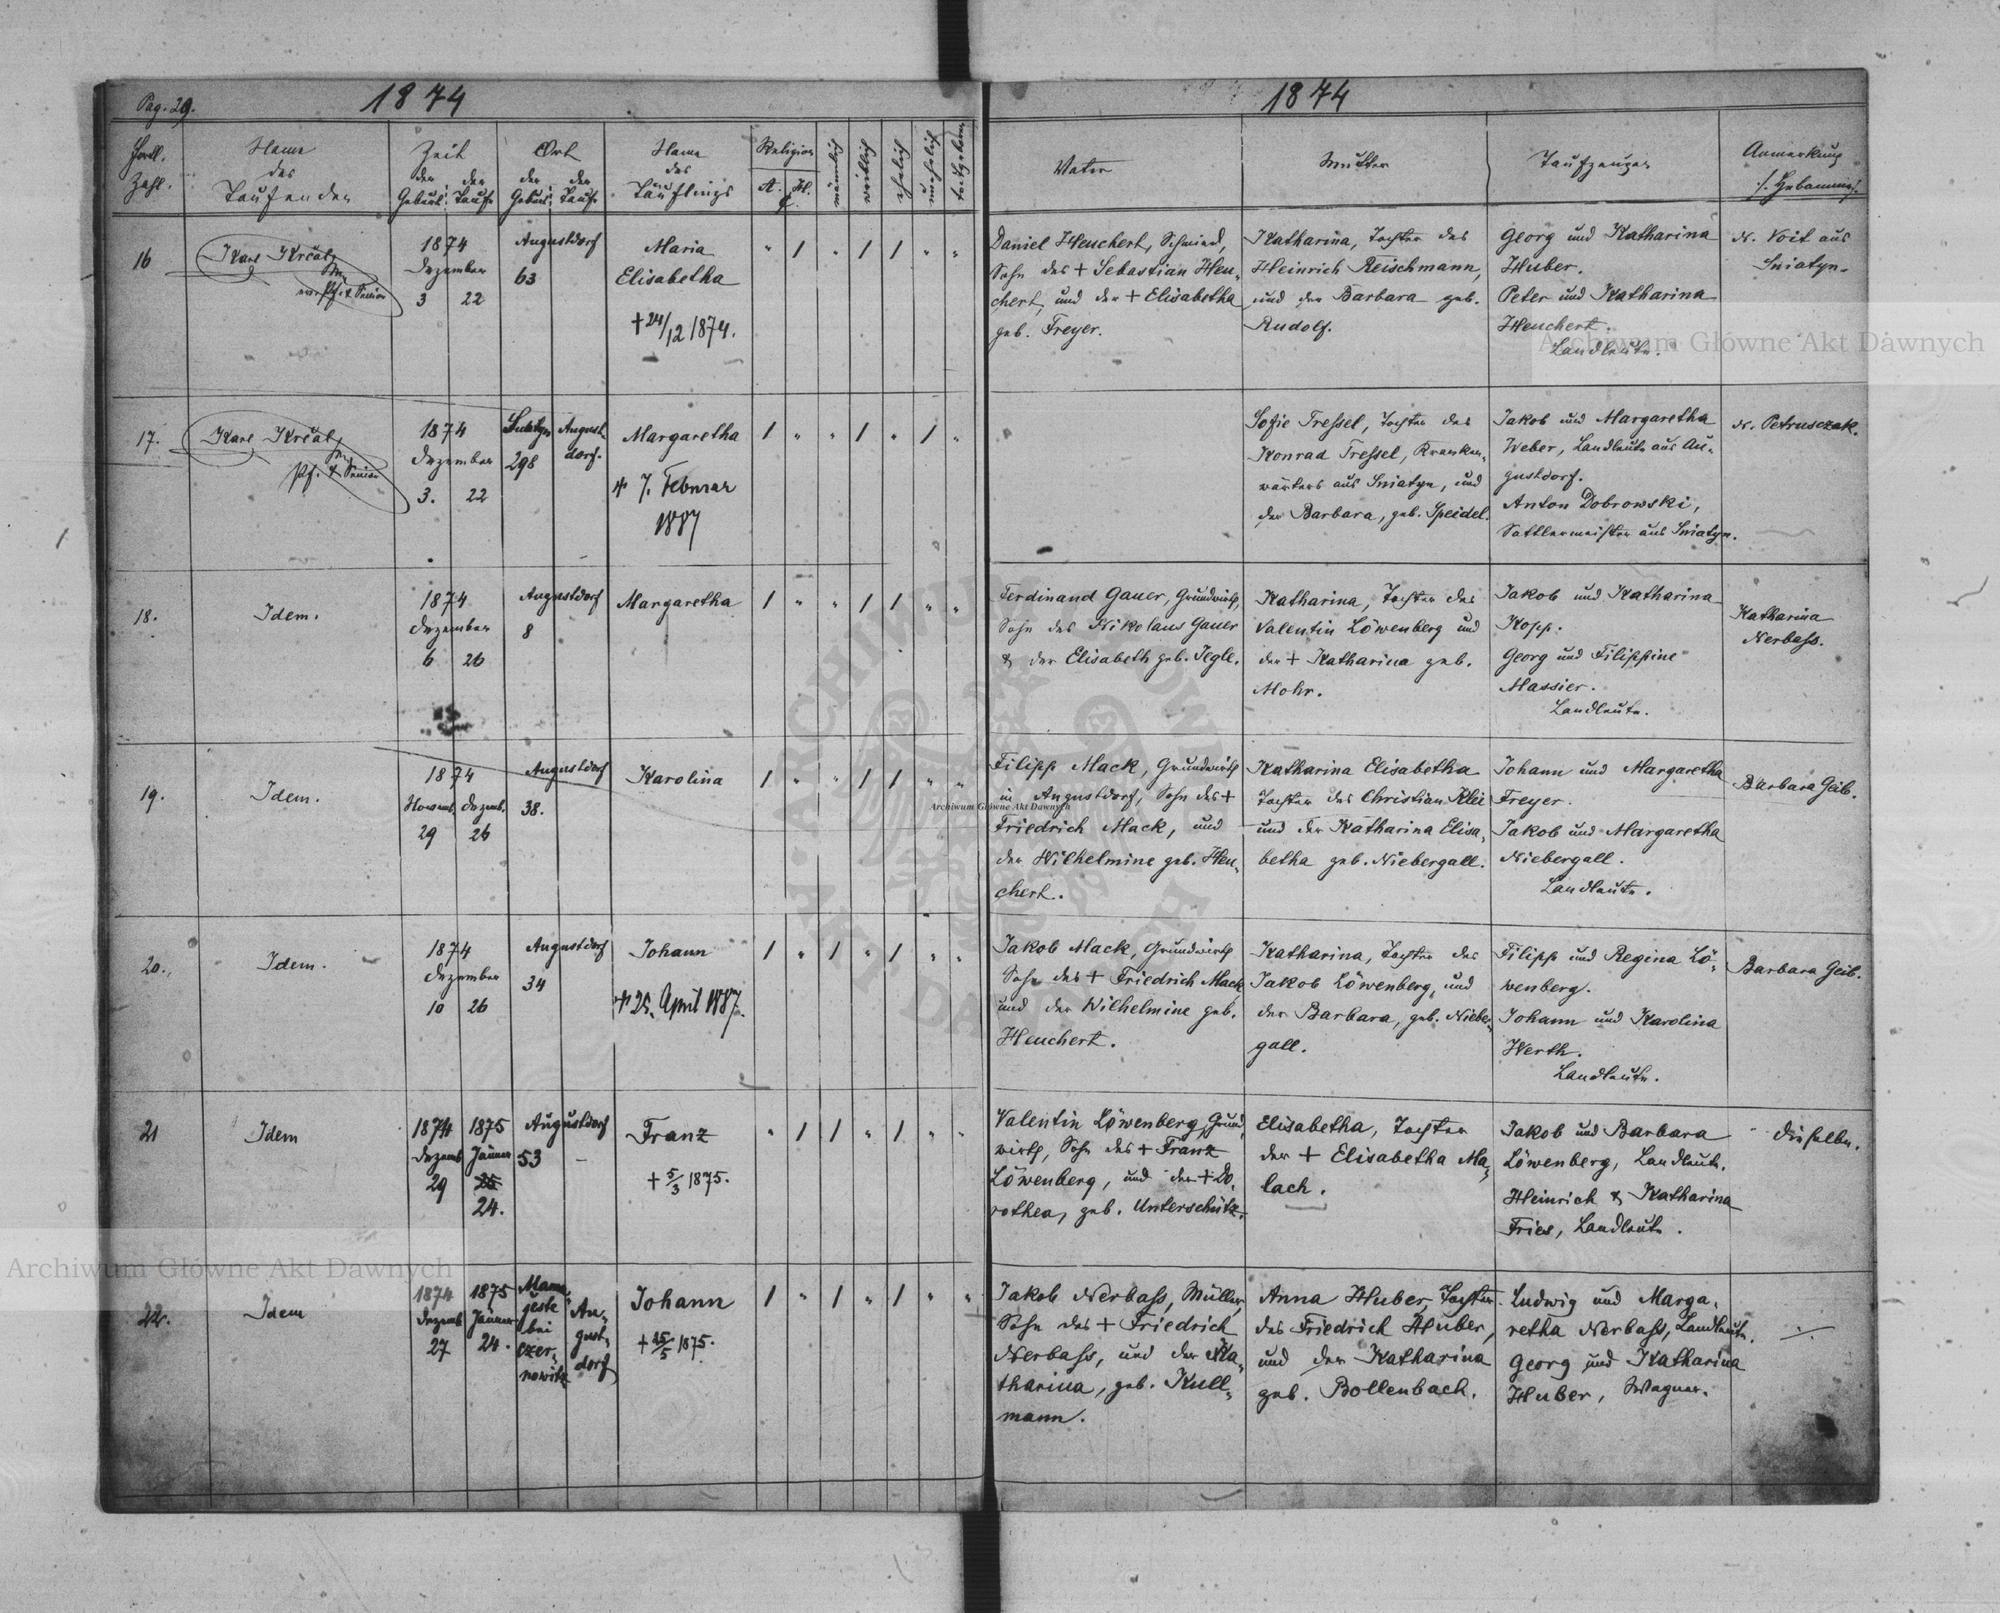 Pag. 29.
1874
1874
Fortl. Zahl.
Name des Taufenden
Zeit der Geburt der Taufe
Ort der Geburt der Taufe
Name des Täuflings
Religion A. H. C.
männlich
weiblich
ehelich
unehelich
todtgeboren
Vater
Mutter
Taufzeugen
Anmerkung
/. Hebamme ./
16
Karl Krčal,
ev. Pf. & Senior
1874
Dezember
3 22
Augustdorf
63
Maria
Elisabetha
+ 24/12 1874.
" / " / / " "
Daniel Heuchert, Schmied,
Sohn des + Sebastian Heu-
chert, und der + Elisabetha
geb. Freyer.
Katharina, Tochter des
Heinrich Reischmann,
und der Barbara geb.
Rudolf.
Georg und Katharina
Huber.
Peter und Katharina
Heuchert.
Landleute.
N. Voit aus
Sniatyn.
17.
Karl Krčal,
Pf. & Senior
1874
Dezember
3. 22
Sniatyn
298
August-
dorf.
Margaretha
+ 7. Februar
1887
/ " " / " / "
Sofie Tressel, Tochter des
Konrad Tressel, Kranken-
wärters aus Sniatyn, und
der Barbara, geb. Speidel.
Jakob und Margaretha
Weber, Landleute aus Au-
gustdorf.
Anton Dobrowski,
Sattlermeister aus Sniatyn.
N. Petrusczak.
18.
Idem.
1874
Dezember
6 26
Augustdorf
8
Margaretha
/ " " / / " "
Ferdinand Gauer, Grundwirth,
Sohn des Nikolaus Gauer
& der Elisabeth geb. Jegle.
Katharina, Tochter des
Valentin Löwenberg und
der + Katharina geb.
Mohr.
Jakob und Katharina
Kopp.
Georg und Filippine
Massier.
Landleute.
Katharina
Nerbass.
19.
Idem.
1874
Novemb. Dezemb.
29 26
Augustdorf
38.
Karolina
/ " " / / " "
Filipp Mack, Grundwirth
in Augustdorf, Sohn des +
Friedrich Mack, und
der Wilhelmine geb. Heu-
chert.
Katharina Elisabetha
Tochter des Christian Klei
und der Katharina Elisa-
betha geb. Niebergall.
Johann und Margaretha
Freyer.
Jakob und Margaretha
Niebergall.
Landleute.
Barbara Geib.
20.
Idem.
1874
Dezember
10 26
Augustdorf
34
Johann
+ 25. April 1887.
/ " / " / " "
Jakob Mack, Grundwirth
Sohn des + Friedrich Mack
und der Wilhelmine geb.
Heuchert.
Katharina, Tochter des
Jakob Löwenberg, und
der Barbara, geb. Nieber-
gall.
Filipp und Regina Lö-
wenberg.
Johann und Karolina
Werth.
Landleute.
Barbara Geib.
21
Idem
1874 1875
Dezemb Jänner
29 25
24.
Augustdorf
53 –
Franz
+ 5/3 1875.
" / / " / " "
Valentin Löwenberg, Grund-
wirth, Sohn des + Franz
Löwenberg, und der + Do-
rothea, geb. Unterschütz.
Elisabetha, Tochter
der + Elisabetha Ma-
lach.
Jakob und Barbara
Löwenberg, Landleute.
Heinrich & Katharina
Fries, Landleute.
dieselbe.
22.
Idem
1874 1875
Dezemb Jänner
27 24.
Mama-
jeste
bei
Czer-
nowitz
Au-
gust-
dorf
Johann
+ 25/5 1875.
/ " / " / " "
Jakob Nerbass, Müller,
Sohn des + Friedrich
Nerbass, und der Ka-
tharina, geb. Kull-
mann.
Anna Huber, Tochter
des Friedrich Huber,
und der Katharina
geb. Bollenbach.
Ludwig und Marga-
retha Nerbass, Landleute.
Georg und Katharina
Huber, Wagner.
./.
Archiwum Główne Akt Dawnych
Archiwum Główne Akt Dawnych
Archiwum Główne Akt Dawnych